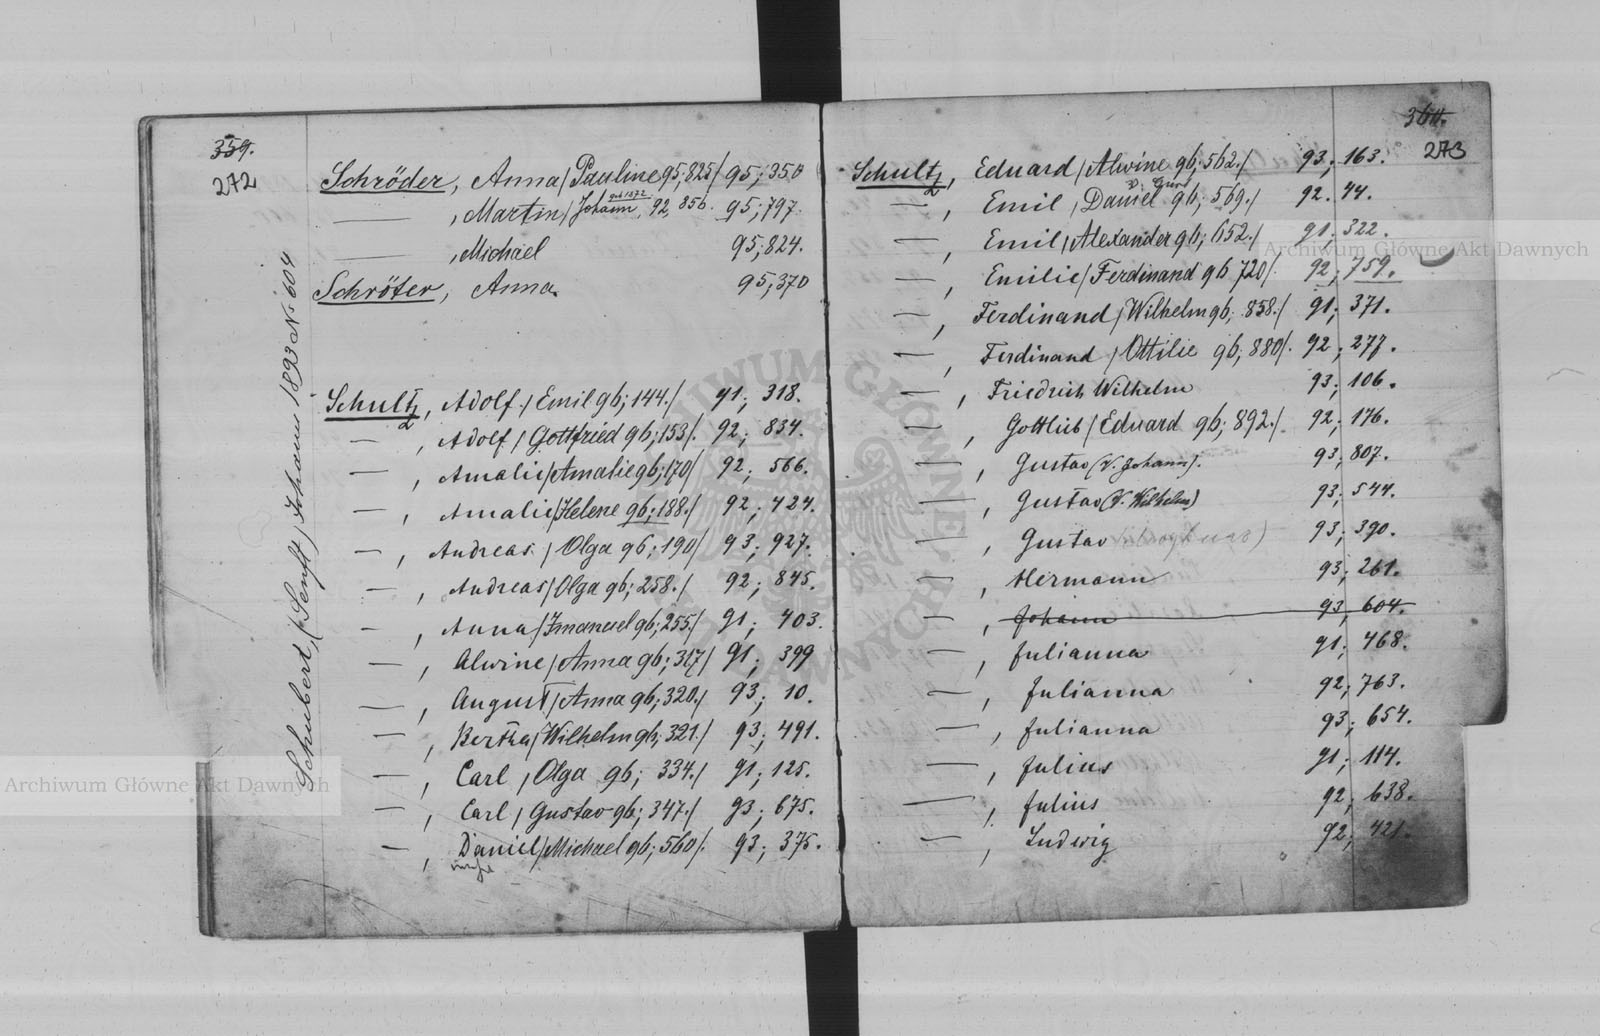 359.
272
Schröder, Anna / Pauline 95,825 / 95; 350
— , Martin / Johann geb 1872, 92, 856. 95; 797.
— , Michael 95; 824.
Schröter, Anna. 95; 370
Schubert, (Senft) Johann 1893 No 604
Schultz, Adolf / Emil 96; 144. / 91; 318.
— , Adolf / Gottfried 96; 153 /. 92; 834.
— , Amalie / Amalie 96; 170 / 92; 566.
— , Amalie / Helene 96; 188. / 92; 424.
— , Andreas / Olga 96; 190 / 93; 927.
— , Andreas / Olga 96; 258. / 92; 845.
— , Anna / Imanuel 96; 255. / 91; 403.
— , Alwine / Anna 96; 317 / 91; 399
— , August / Anna 96; 320. / 93; 10.
— , Bertha / Wilhelm 96; 321. / 93; 491.
— , Carl / Olga 96; 334. / 91; 125.
— , Carl / Gustav 96; 347. / 93; 675.
— , Daniel / Michael 96; 560 /. 93; 375.
364.
273
Schultz, Eduard / Alwine 96; 562. / 93; 163.
— , Emil / Daniel 96; 569. / 92. 44.
— , Emil / Alexander 96; 652. / 91; 322.
— , Emilie / Ferdinand 96 720 /. 92; 759.
— , Ferdinand / Wilhelm 96; 858. / 91; 371.
— , Ferdinand / Ottilie 96; 880 /. 92; 277.
— , Friedrich Wilhelm 93; 106.
— , Gottlieb / Eduard 96; 892. /. 92; 176.
— , Gustav (V. Johann). 93; 807.
— , Gustav (V. Wilhelm) 93; 544.
— , Gustav 93; 390.
— , Hermann 93; 261.
— , Johann 93, 604.
— , Julianna 91; 468.
— , Julianna 92; 763.
— , Julianna 93; 654.
— , Julius 91; 114.
— , Julius 92; 638.
— , Ludwig 92; 421.
Archiwum Główne Akt Dawnych
Archiwum Główne Akt Dawnych
ARCHIWUM GŁÓWNE AKT DAWNYCH